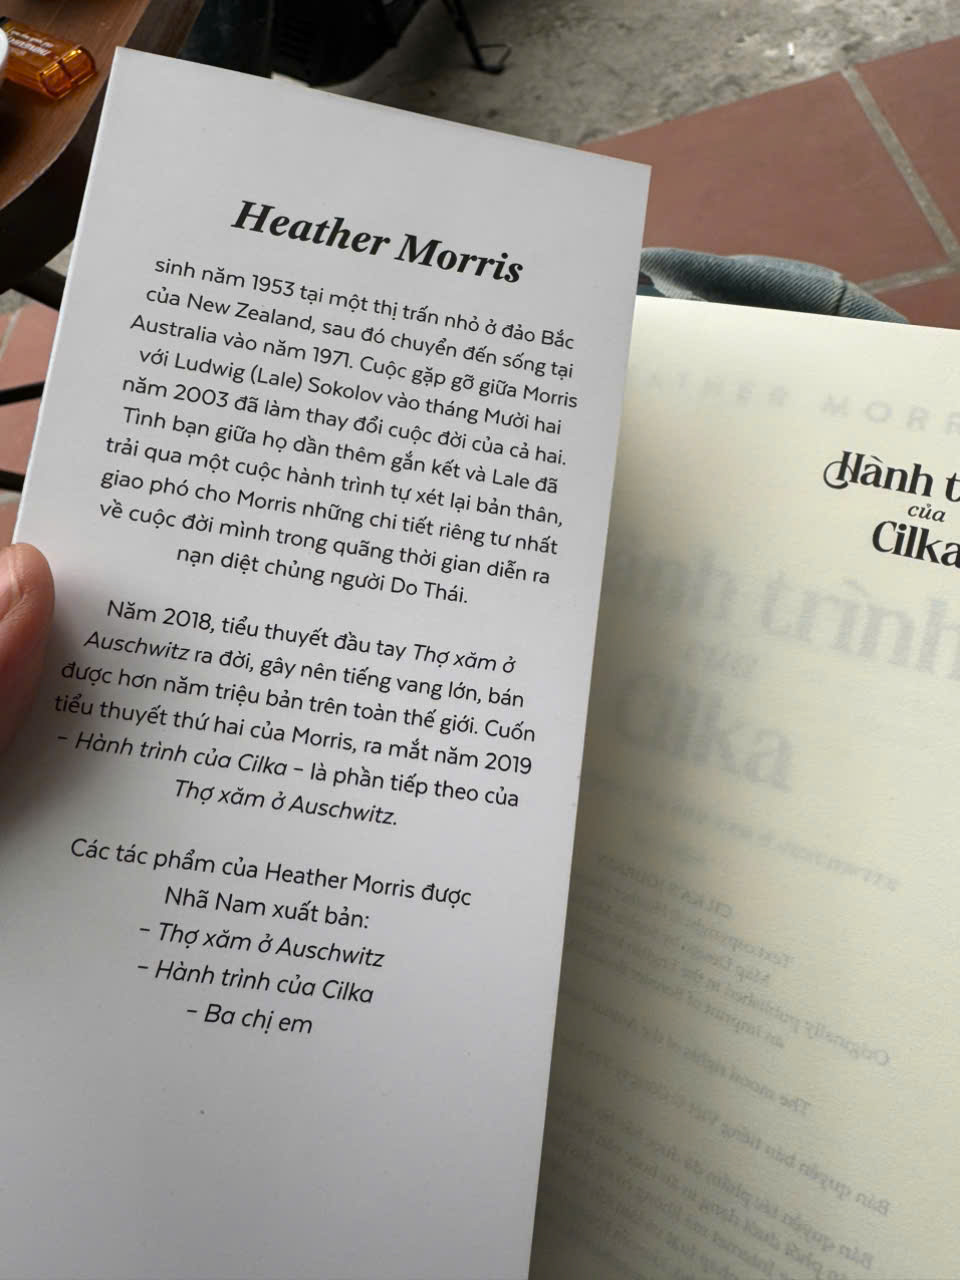 Heather Morris
sinh năm 1953 tại một thị trấn nhỏ ở đảo Bắc
của New Zealand, sau đó chuyển đến sống tại
Australia vào năm 1971. Cuộc gặp gỡ giữa Morris
với Ludwig (Lale) Sokolov vào tháng Mười hai
năm 2003 đã làm thay đổi cuộc đời của cả hai.
Tình bạn giữa họ dần thêm gắn kết và Lale đã
trải qua một cuộc hành trình tự xét lại bản thân,
giao phó cho Morris những chi tiết riêng tư nhất
về cuộc đời mình trong quãng thời gian diễn ra
nạn diệt chủng người Do Thái.
Năm 2018, tiểu thuyết đầu tay Thợ xăm ở
Auschwitz ra đời, gây nên tiếng vang lớn, bán
được hơn năm triệu bản trên toàn thế giới. Cuốn
tiểu thuyết thứ hai của Morris, ra mắt năm 2019
– Hành trình của Cilka – là phần tiếp theo của
Thợ xăm ở Auschwitz.
Các tác phẩm của Heather Morris được
Nhã Nam xuất bản:
– Thợ xăm ở Auschwitz
– Hành trình của Cilka
– Ba chị em
Hành t
của
Cilka